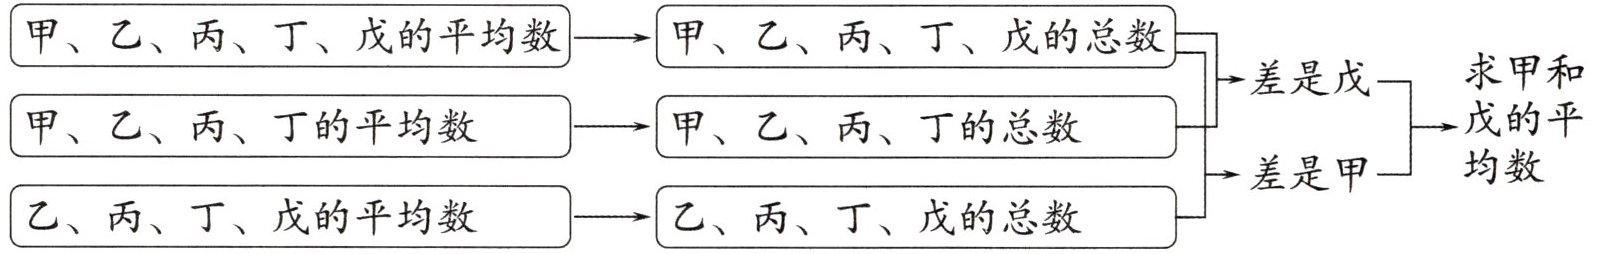 甲、乙、丙、丁、戊的平均数
甲、乙、丙、丁、戊的总数
甲、乙、丙、丁的平均数
甲、乙、丙、丁的总数
乙、丙、丁、戊的平均数
乙、丙、丁、戊的总数
差是戊
差是甲
求甲和
戊的平
均数